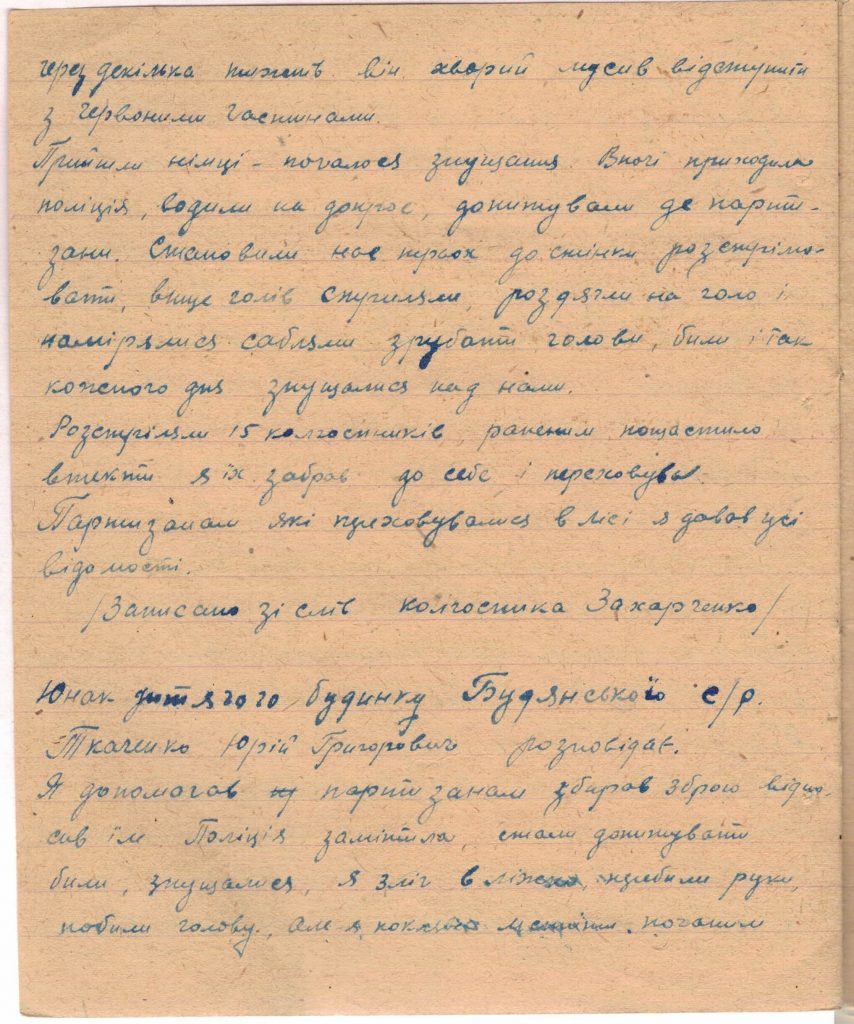 через декілька тижнів він хворий мусив відступити
з червоними частинами.
Прийшли німці - почалося знущання. Вночі приходила
поліція, водили на допрос, допитували де парти-
зани. Становили нас трьох до стінки розстрілю-
вати, вище голів стриляли, роздягли на голо і
намірялися саблями зрубати голови, били і так
кожного дня знущалися над нами.
Розстріляли 15 колгоспників, раненим пощастило
втекти я їх забрав до себе і переховував.
Партизанам які переховувалися в лісі я давав усі
відомості.
/Записано зі слів колгоспника Захарченко/
Юнак дитячого будинку Будянської с/р.
Ткаченко Юрій Григорович розповідає.
Я допомогав партизанам збирав зброю відно-
сив їм Поліція замітила, стали допитувати
били, знущалися, я зліг в ліжко, перебили руки,
побили голову, але я почали